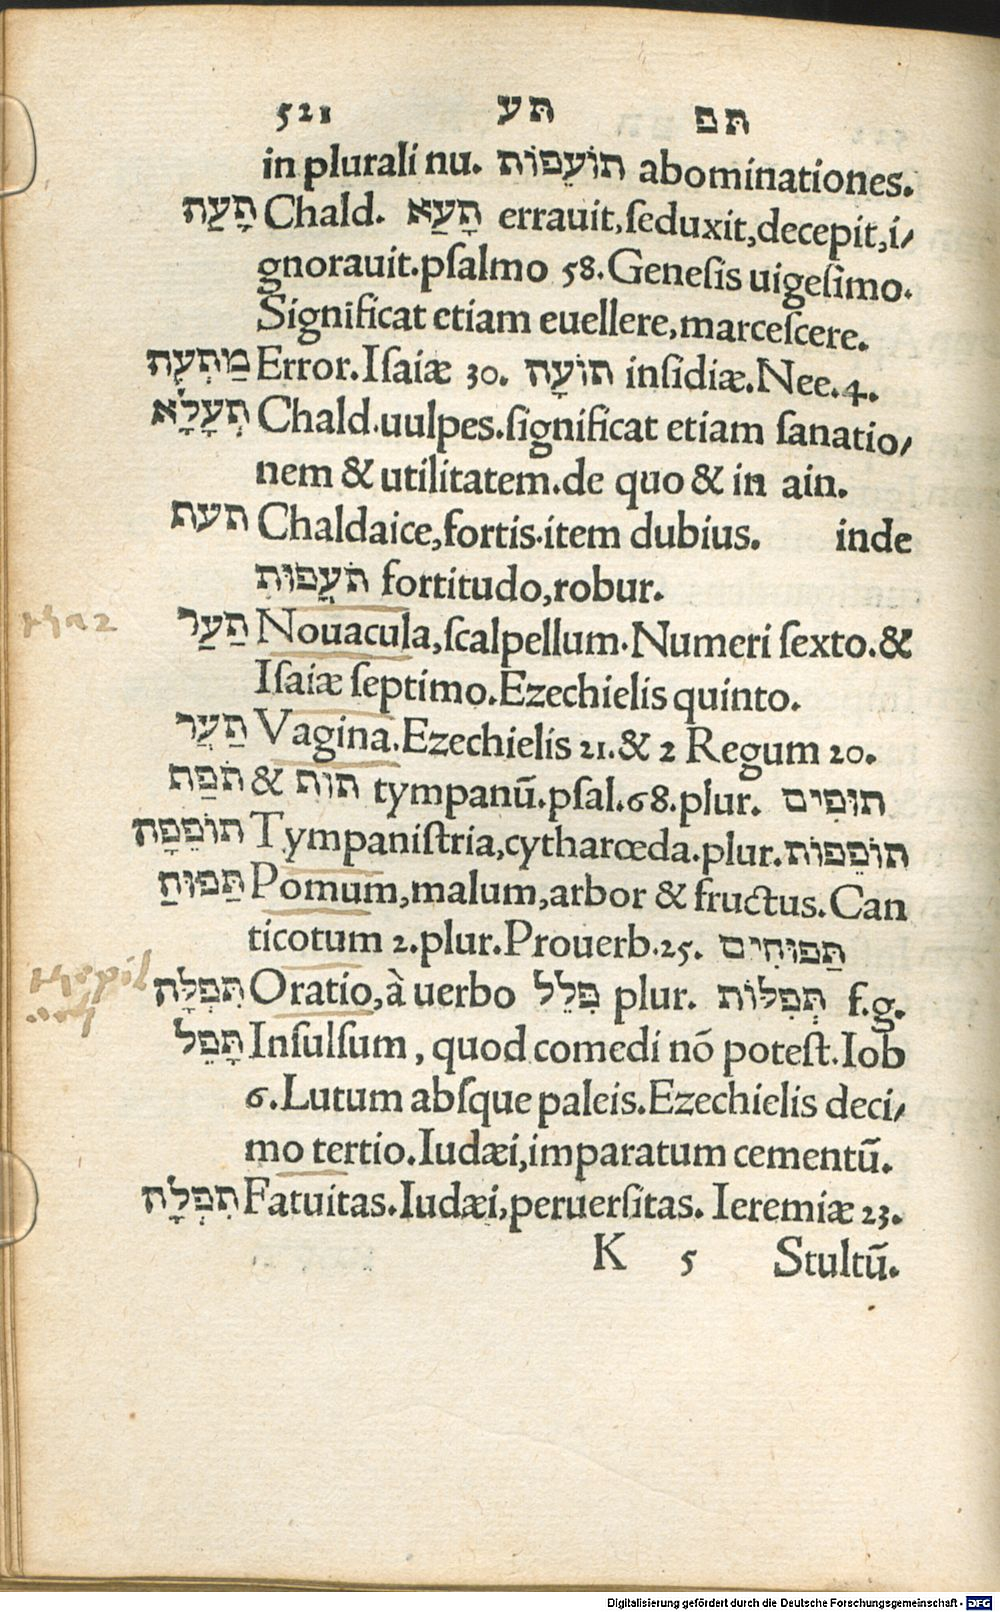 521 תּע תּפּ
in plurali nu. תוֹעֵפוֹת abominationes.
תָעַה Chald. תָעַא errauit, ſeduxit, decepit, i/
gnorauit. pſalmo 58. Geneſis uigeſimo.
Significat etiam euellere, marceſcere.
מַתְעֶה Error. Iſaiæ 30. תוֹעָה inſidiæ. Nee. 4.
תְעָלָא Chald. uulpes. ſignificat etiam ſanatio/
nem & utilitatem. de quo & in ain.
תעת Chaldaice, fortis. item dubius. inde
fortitudo, robur.
תַּעַר Nouacula, ſcalpellum. Numeri ſexto. &
Iſaiæ ſeptimo. Ezechielis quinto.
תַּעֲר Vagina. Ezechielis 21. & 2 Regum 20.
& tympanū. pſal. 68. plur. תוּפִּים
תוֹפֵפָה Tympaniſtria, cytharœda. plur. תוֹפֵפוֹת
תַּפּוּחַ Pomum, malum, arbor & fructus. Can
ticotum 2. plur. Prouerb. 25. תַּפּוּחִים
תִּפְלָּה Oratio, à uerbo פִּלֵל plur. תְּפִלּוֹת f. g.
תָּפֵל Inſulſum, quod comedi nō poteſt. Iob
6. Lutum abſque paleis. Ezechielis deci/
mo tertio. Iudæi, imparatum cementū.
תִפְלָה Fatuitas. Iudæi, peruerſitas. Ieremiæ 23.
K 5 Stultū.
Digitalisierung gefördert durch die Deutsche Forschungsgemeinschaft - DFG